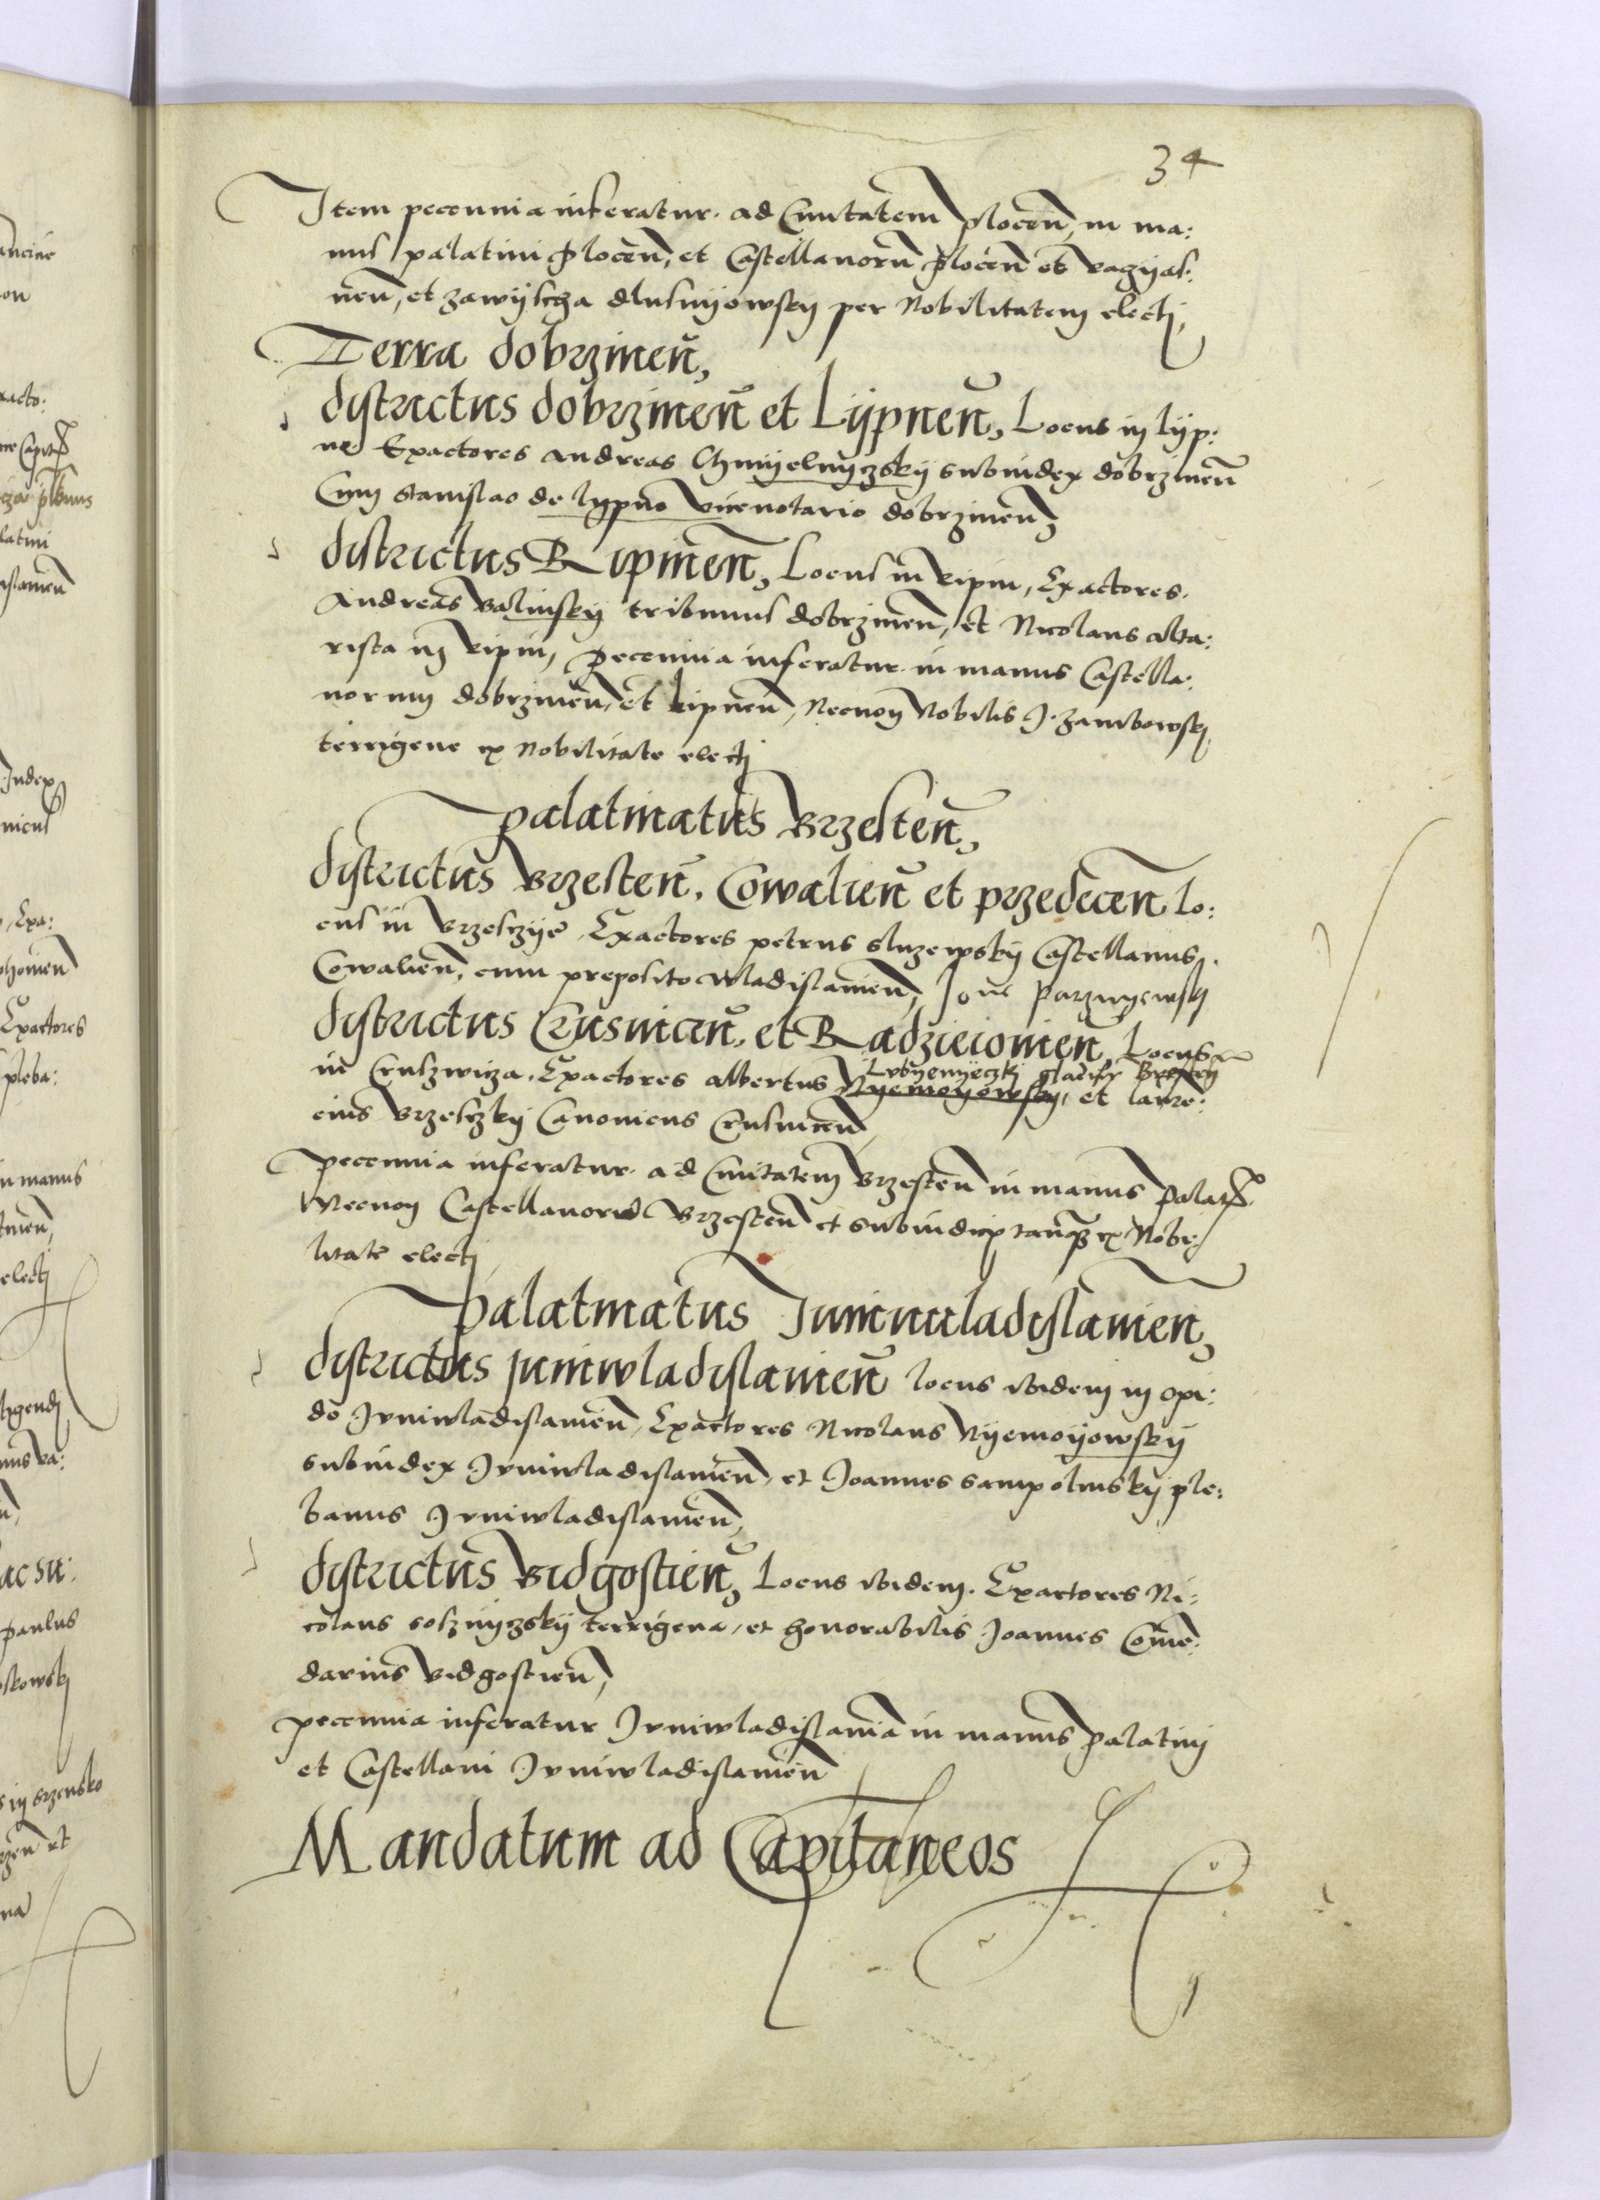 34
Item peccunia inferatur ad Civitatem plocen, in ma:
nus palatini plocen, et Castellanorum plocen et raczyas:
nen, et zawyscha dlusnyowsky per Nobilitatem electi,
Terra dobrzinen,
districtus dobrzinen et Lypnen, Locus in lyp:
ne Exactores Andreas Chmyelnyczsky subiudex dobrzinen
Cum Stanislao de lypno vicenotario dobrzinen,
districtus Ripinen, Locus in ripin, Exactores
Andreas Balinsky tribunus dobrzinen, et Nicolaus alta:
rista in ripin, Peccunia inferatur in manus Castella:
norum dobrzinen, et ripinen, Necnon Nobilis J. zambowsky
terrigene ex Nobilitate electi
palatinatus Brzesten,
districtus Brzesten, Cowalien et przedecen lo:
cus in brzesczye Exactores petrus sluzewsky Castellanus
Cowalien, cum preposito wladislavien, Jone parznyewsky
districtus Crusvicen, et Radzieiovien, Locus
in Cruszwicza, Exactores albertus Nyemoyowsky, et laure:
Lubyenyeczki gladifer Bresten
cius brzesczky Canonicus Crusvicen,
peccunia inferatur ad Civitatem Brzesten in manus palat
Necnon Castellanorum Brzesten et subiudicis tanquam ex Nobi
litate electi,
Palatinatus Junivuladislavien,
districtus Juniwladislavien locus ibidem in opi:
do Juniwladislavien, Exactores Nicolaus Nyemoyowsky
subiudex Juniwladislavien, et Joannes sampolinsky ple:
banus Juniwladislavien,
districtus Bidgostien, Locus ibidem. Exactores Ni:
colaus sosznyczsky terrigena, et honorabilis Joannes Comen:
darius bidgostien,
peccunia inferatur Juniwladislaviam in manus palatini
et Castellani Juniwladislavien
Mandatum ad Capitaneos